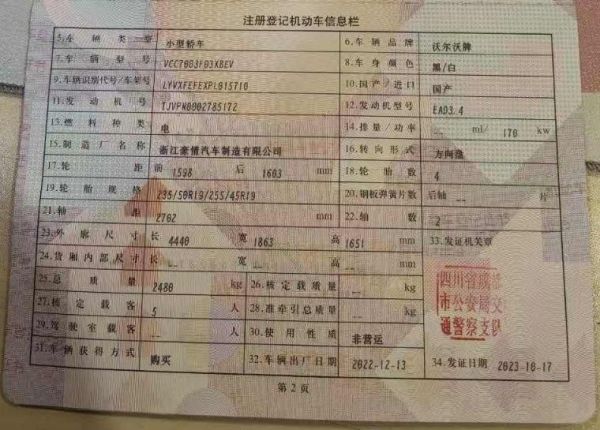 注册登记机动车信息栏
5.车辆类型 小型轿车 6.车辆品牌 沃尔沃牌
7.车辆型号 VCC7003F03XBEV 8.车身颜色 黑/白
9.车辆识别代号/车架号 LYVXFEFEXPL015710 10.国产/进口 国产
11.发动机号 TJVPN0002785172 12.发动机型号 EAD3.4
13.燃料种类 电 14.排量/功率 __ ml/ 170 kw
15.制造厂名称 浙江豪情汽车制造有限公司 16.转向形式 方向盘
17.轮距 前 1598 后 1603 mm 18.轮胎数 4
19.轮胎规格 235/50R19/255/45R19 20.钢板弹簧片数 后轴 __ 片
21.轴距 2702 mm 22.轴数 2
23.外廓尺寸 长 4440 宽 1863 高 1651 mm 33.发证机关章
24.货厢内部尺寸 长 __ 宽 __ 高 __ mm
25.总质量 2480 kg 26.核定载质量 __ kg
四川省成都
市公安局交
通警察支队
27.核定载客 5 人 28.准牵引总质量 __ kg
29.驾驶室载客 __ 人 30.使用性质 非营运
31.车辆获得方式 购买 32.车辆出厂日期 2022-12-13 34.发证日期 2023-10-17
第2页